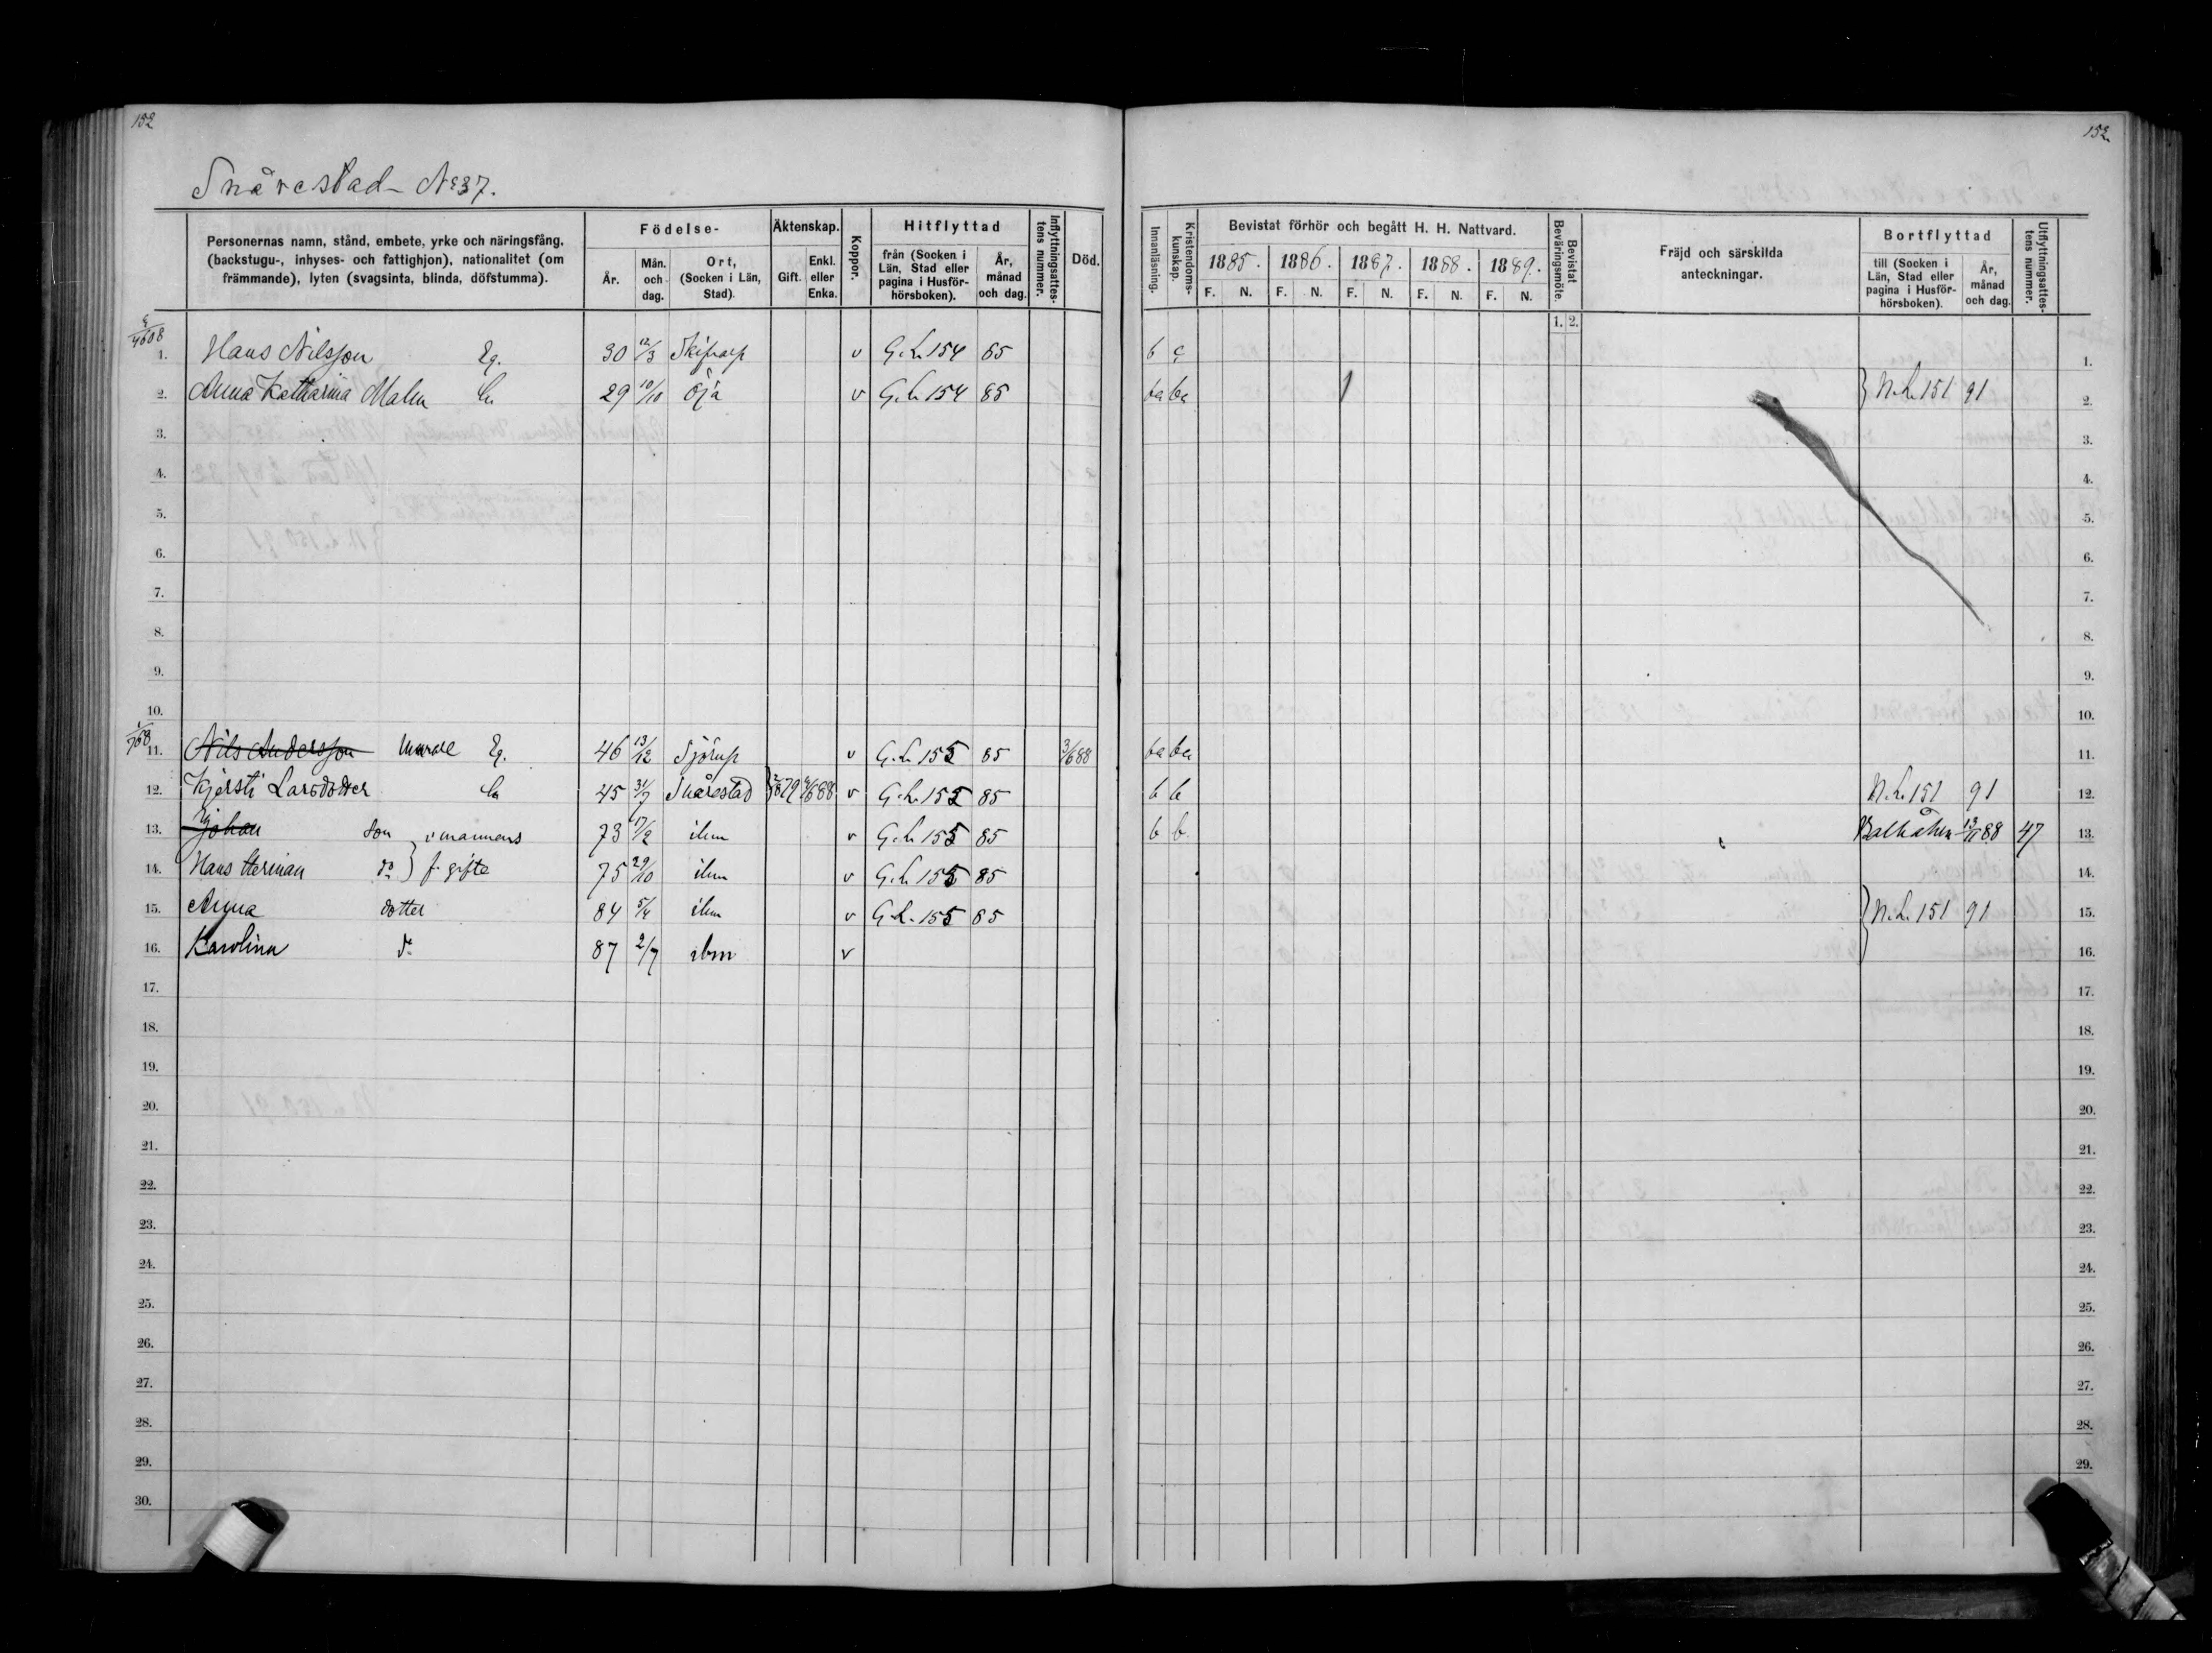 152
152
Snårestad No 37.
Personernas namn, stånd, embete, yrke och näringsfång. (backstugu-, inhyses- och fattighjon), nationalitet (om främmande), lyten (svagsinta, blinda, döfstumma).
Födelse-
År.
Mån. och dag.
Ort, (Socken i Län, Stad).
Äktenskap.
Gift.
Enkl. eller Enka.
Koppor.
Hitflyttad
från (Socken i Län, Stad eller pagina i Husförhörsboken).
År, månad och dag.
Inflyttningsattestens nummer.
Död.
Innanläsning.
Kristendomskunskap.
Bevistat förhör och begått H. H. Nattvard.
1885. 1886. 1887. 1888. 1889.
F. N. F. N. F. N. F. N. F. N.
Bevistat Beväringsmöte.
1. 2.
Fräjd och särskilda anteckningar.
Bortflyttad
till (Socken i Län, Stad eller pagina i Husförhörsboken).
År, månad och dag.
Utflyttningsattestens nummer.
1. Hans Nilsson Eg. 30 12/3 v G.L. 154 85 b c 1.
2. Anna Katharina Malm 29 10/10 Öja v G.L. 154 85 ba ba } N.L. 151 91 2.
3. 3.
4. 4.
5. 5.
6. 6.
7. 7.
8. 8.
9. 9.
10. 10.
11. Nils Andersson Eg. 46 13/12 Sjörup v G.L. 155 85 3/6 88 ba ba 11.
12. Kjersti Larsdotter 45 31/7 Snårestad v G.L. 155 85 b b N.L. 151 91 12.
13. Johan son 73 17/2 ibm v G.L. 155 85 b b 88 47 13.
14. Hans Herman do } f. gifte 75 29/10 ibm v G.L. 155 85 14.
15. Anna dotter 84 5/4 ibm v G.L. 155 85 } N.L. 151 91 15.
16. Karolina do 87 2/7 ibm v 16.
17. 17.
18. 18.
19. 19.
20. 20.
21. 21.
22. 22.
23. 23.
24. 24.
25. 25.
26. 26.
27. 27.
28. 28.
29. 29.
30.